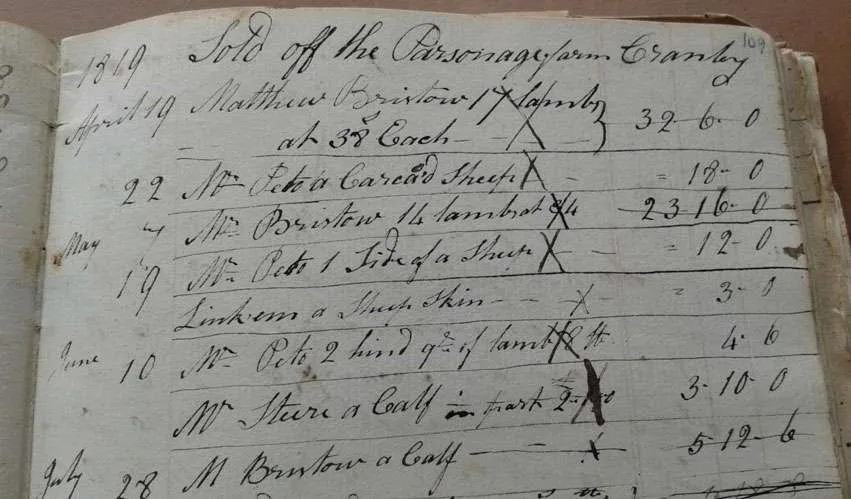 109
1819 Sold off the Parsonage farm Cranby
April 19 Matthew Bristow 17 lambs
at 38s Each - - 32 - 6 - 0
22 Mr Peto a Carcasd Sheep - = 18 - 0
May 7 Mr Bristow 14 lambs at 34 23 16 - 0
19 Mr Peto 1 Side of a Sheep - = 12 - 0
Linkem a Sheep Skin - - - = 3 - 0
June 10 Mr Peto 2 hind qrs of lamb 4 - 6
Mr Steere a Calf in part 3 - 10 - 0
July 28 M Bristow a Calf - - - 5 - 12 - 6